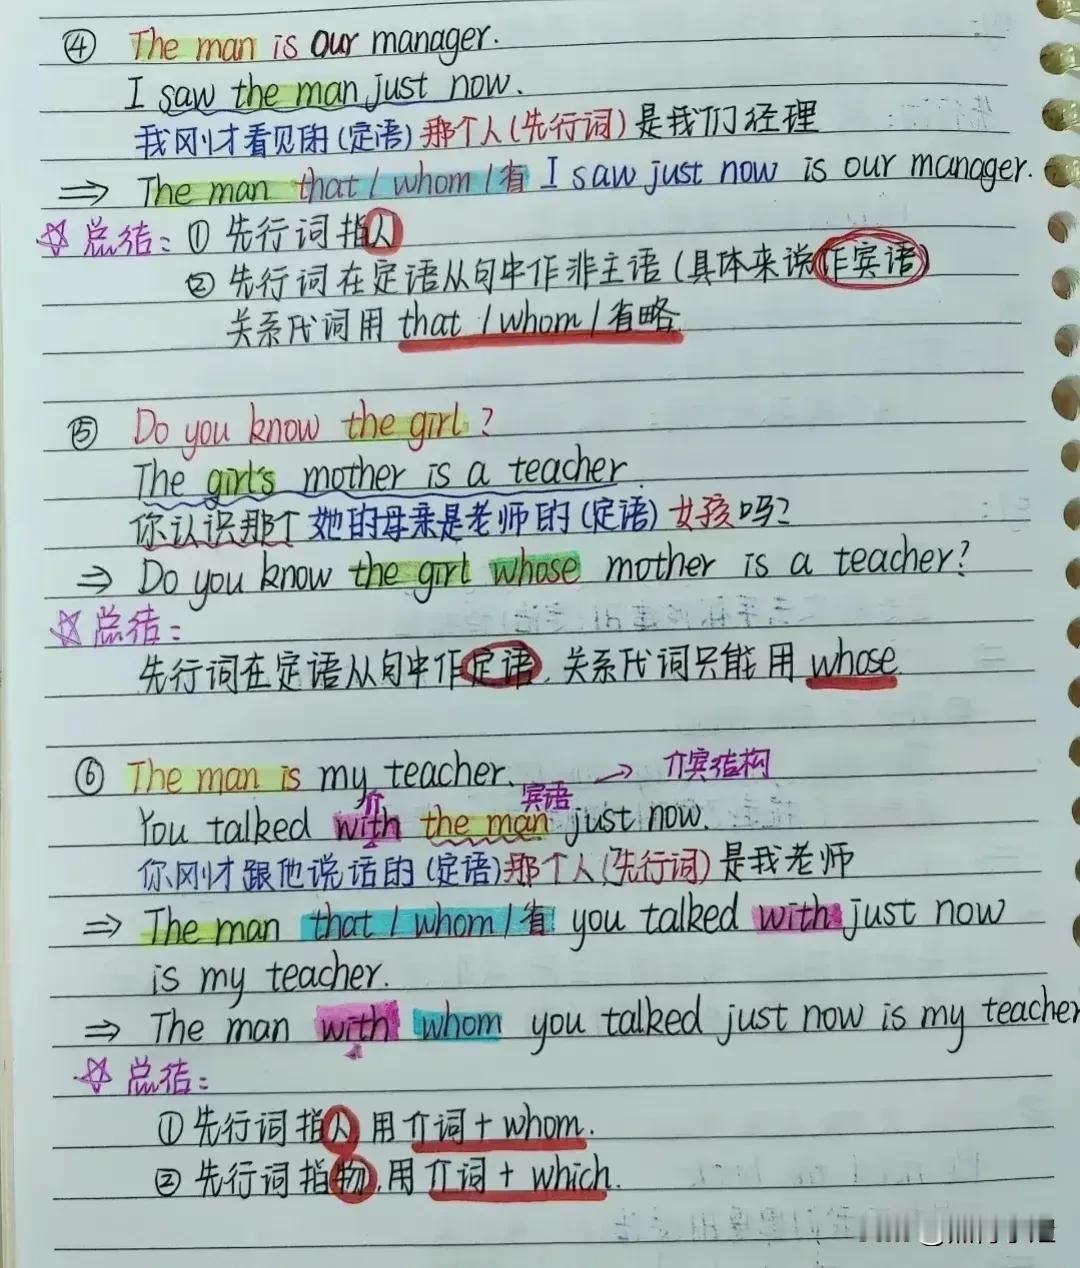 ④ The man is our manager.
I saw the man just now.
我刚才看见的(定语)那个人(先行词)是我们经理
⇒ The man that / whom / 省 I saw just now is our manager.
☆ 总结: ① 先行词指人
② 先行词在定语从句中作非主语(具体来说作宾语)
关系代词用 that / whom / 省略
⑤ Do you know the girl?
The girl's mother is a teacher.
你认识那个 她的母亲是老师的(定语)女孩吗?
⇒ Do you know the girl whose mother is a teacher?
☆ 总结:
先行词在定语从句中作定语, 关系代词只能用 whose.
⑥ The man is my teacher. → 介宾结构
介 宾语
You talked with the man just now.
你刚才跟他说话的(定语)那个人(先行词)是我老师
⇒ The man that / whom / 省 you talked with just now
is my teacher.
⇒ The man with whom you talked just now is my teacher
☆ 总结:
① 先行词指人, 用介词 + whom.
② 先行词指物, 用介词 + which.